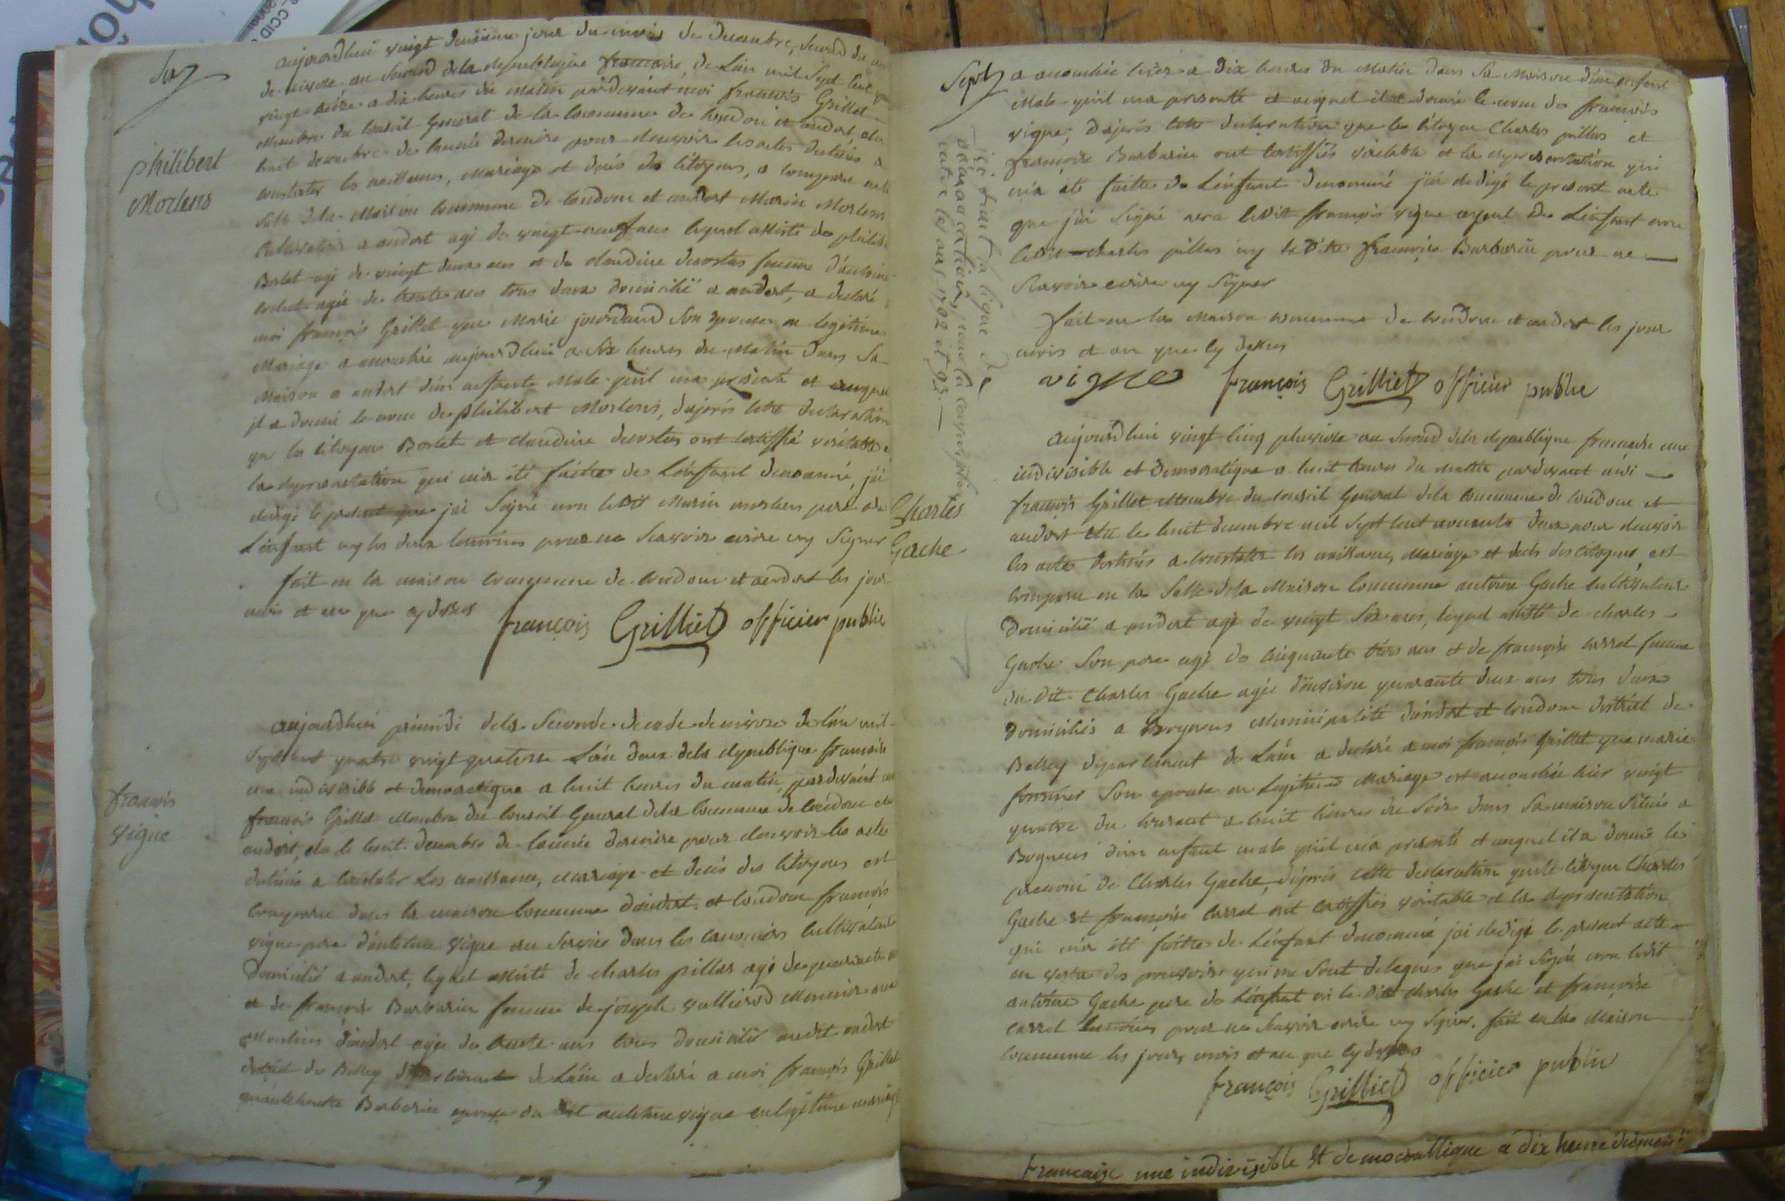 Six
aujourdhui vingt deuxieme jour du mois de decembre, second du
de nivose an second de la republique francaise, de l'an mil sept cent qua
vingt treize a dix heures du matin pardevant moi francois Grillet
membre du conseil General de la commune de Coudon et andert elu
huit decembre de l'année derniere pour recevoir les actes destinés a
constater les naissances, mariage et deces des citoyens, a comparu
Philibert
Mortens
salle de la maison commune de Coudon et andert Marin Mortens
cultivateur a andert agé de vingt-neuf ans lequel assisté de philib
Borlet agé de vingt deux ans et de claudine femme d'antoine
borlet agée de trente ans tous deux domicilié a andert, a declaré
moi francois Grillet que Marie jourdand Son epouse en legitime
Mariage a accouchée aujourdhui a Six heures du Matin dans Sa
Maison a andert d'un enfant Male quil ma presenté et auquel
il a donné le nom de philibert Mortens, dapres cette declaration
que les citoyens Borlet et claudine ont certiffié veritable
la representation qui m'a été faitte de L'enfant denommé, j'ai
redigé le present que j'ai Signé avec ledit Marin mortens pere de
L'enfant les deux temoins pour ne Scavoir ecrire ny Signer
fait en la maison commune de Coudon et andert les jour
mois et an que cy dessus
françois Grilliet officier public
françois
Vigne
aujourdhui primidi de la Seconde decade de nivose de l'an mil
Sept cent quatre vingt quatorze L'an deux de la republique francaise
une indivisible et democratique a huit heures du matin, pardevant moi
francois Grillet Membre du conseil General de la commune de Coudon et
andert, elu le huit decembre de l'année derniere pour recevoir les actes
destinés a constater Les naissances, mariage et deces des citoyens est
comparu dans la maison commune d'andert et Coudon francois
vigne pere d'antoine vigne au Service dans les cultivateur
domicilié a andert, lequel assisté de charles pillas agé de quarante
et de françoise Barbarin femme de joseph Meunier aux
Moulins d'andert agée de trente ans tous domicilié audit andert
district de Belley departement de L'ain a declaré a moi francois Grillet
Barbarin epouse du dit antoine vigne en legitime mariage
Sept
a accouchée hier a dix heures du Matin dans Sa Maison d'un enfant
Male qu'il ma presenté et auquel il a donné le nom de francois
vigne, d'apres cette declaration que le citoyen Charles pillas et
francoise Barbarin ont certiffiés veritable et la representation qui
m'a été faitte de L'enfant denommé j'ai redigé le present acte
que j'ai Signé avec ledit françois vigne ayeul de L'enfant
ledit charles pillas ny la ditte francoise Barbarin pour ne
Scavoir ecrire ny Signer
fait en la Maison commune de Coudon et andert les jour
mois et an que cy dessus
vigne françois Grilliet officier public
ici etant la ligne de
demarcation,
entre les ans 1792 et 93.
Charles
Gache
aujourdhui vingt cinq pluviose an Second de la republique francaise une
indivisible et democratique a huit heures du matin pardevant moi
francois Grillet Membre du conseil General de la commune de Coudon et
andert elu le huit decembre mil Sept cent nonante deux pour recevoir
les acte destinés a constater les naissances, mariage et deces des citoyens, est
comparu en la Salle de la Maison Commune antoine Gache cultivateur
domicilié a andert agé de vingt Six ans, lequel assisté de charles
Gache Son pere agé de cinquante trois ans et de françoise carrel femme
du dit Charles Gache agée d'environ quarante deux ans tous deux
domiciliés a Bognens Municipalité d'andert et Coudon district de
Belley departement de L'ain a declaré a moi francois Grillet que marie
Son epouse en Legitime Mariage est accouchée hier vingt
quatre du courant a huit heures du Soir dans Sa maison Située a
Bognens d'un enfant male quil m'a presenté et auquel il a donné le
prenom de Charles Gache, d'apres cette declaration que le citoyen Charles
Gache et françoise Carrel ont certiffiés veritable et la representation
qui m'a été faitte de L'enfant denommé j'ai redigé le present acte
en vertu des pouvoirs qui me Sont delegués que j'ai Signé avec ledit
antoine Gache pere de L'enfant et le dit charles Gache et françoise
carrel temoins pour ne Scavoir ecrire ny Signer. fait en la Maison
commune les jour, mois et an que cy dessus
françois Grilliet officier public
francaise une indivisible et democratique a dix heure du matin